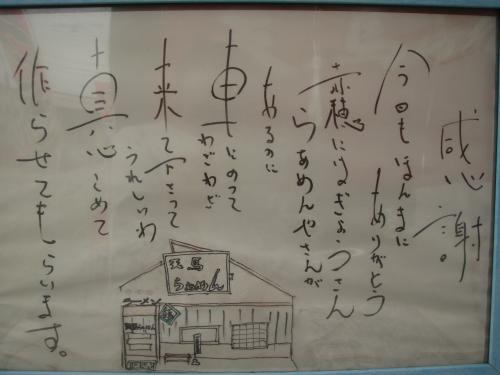 感謝。
今日もほんまに
ありがとう
赤穂にはぎょうさん
らあめんやさんが
あるのに
車にのって
わざわざ
来て下さって
うれしいわ
真心こめて
作らせてもらいます。
馬
らぁめん
ラーメン